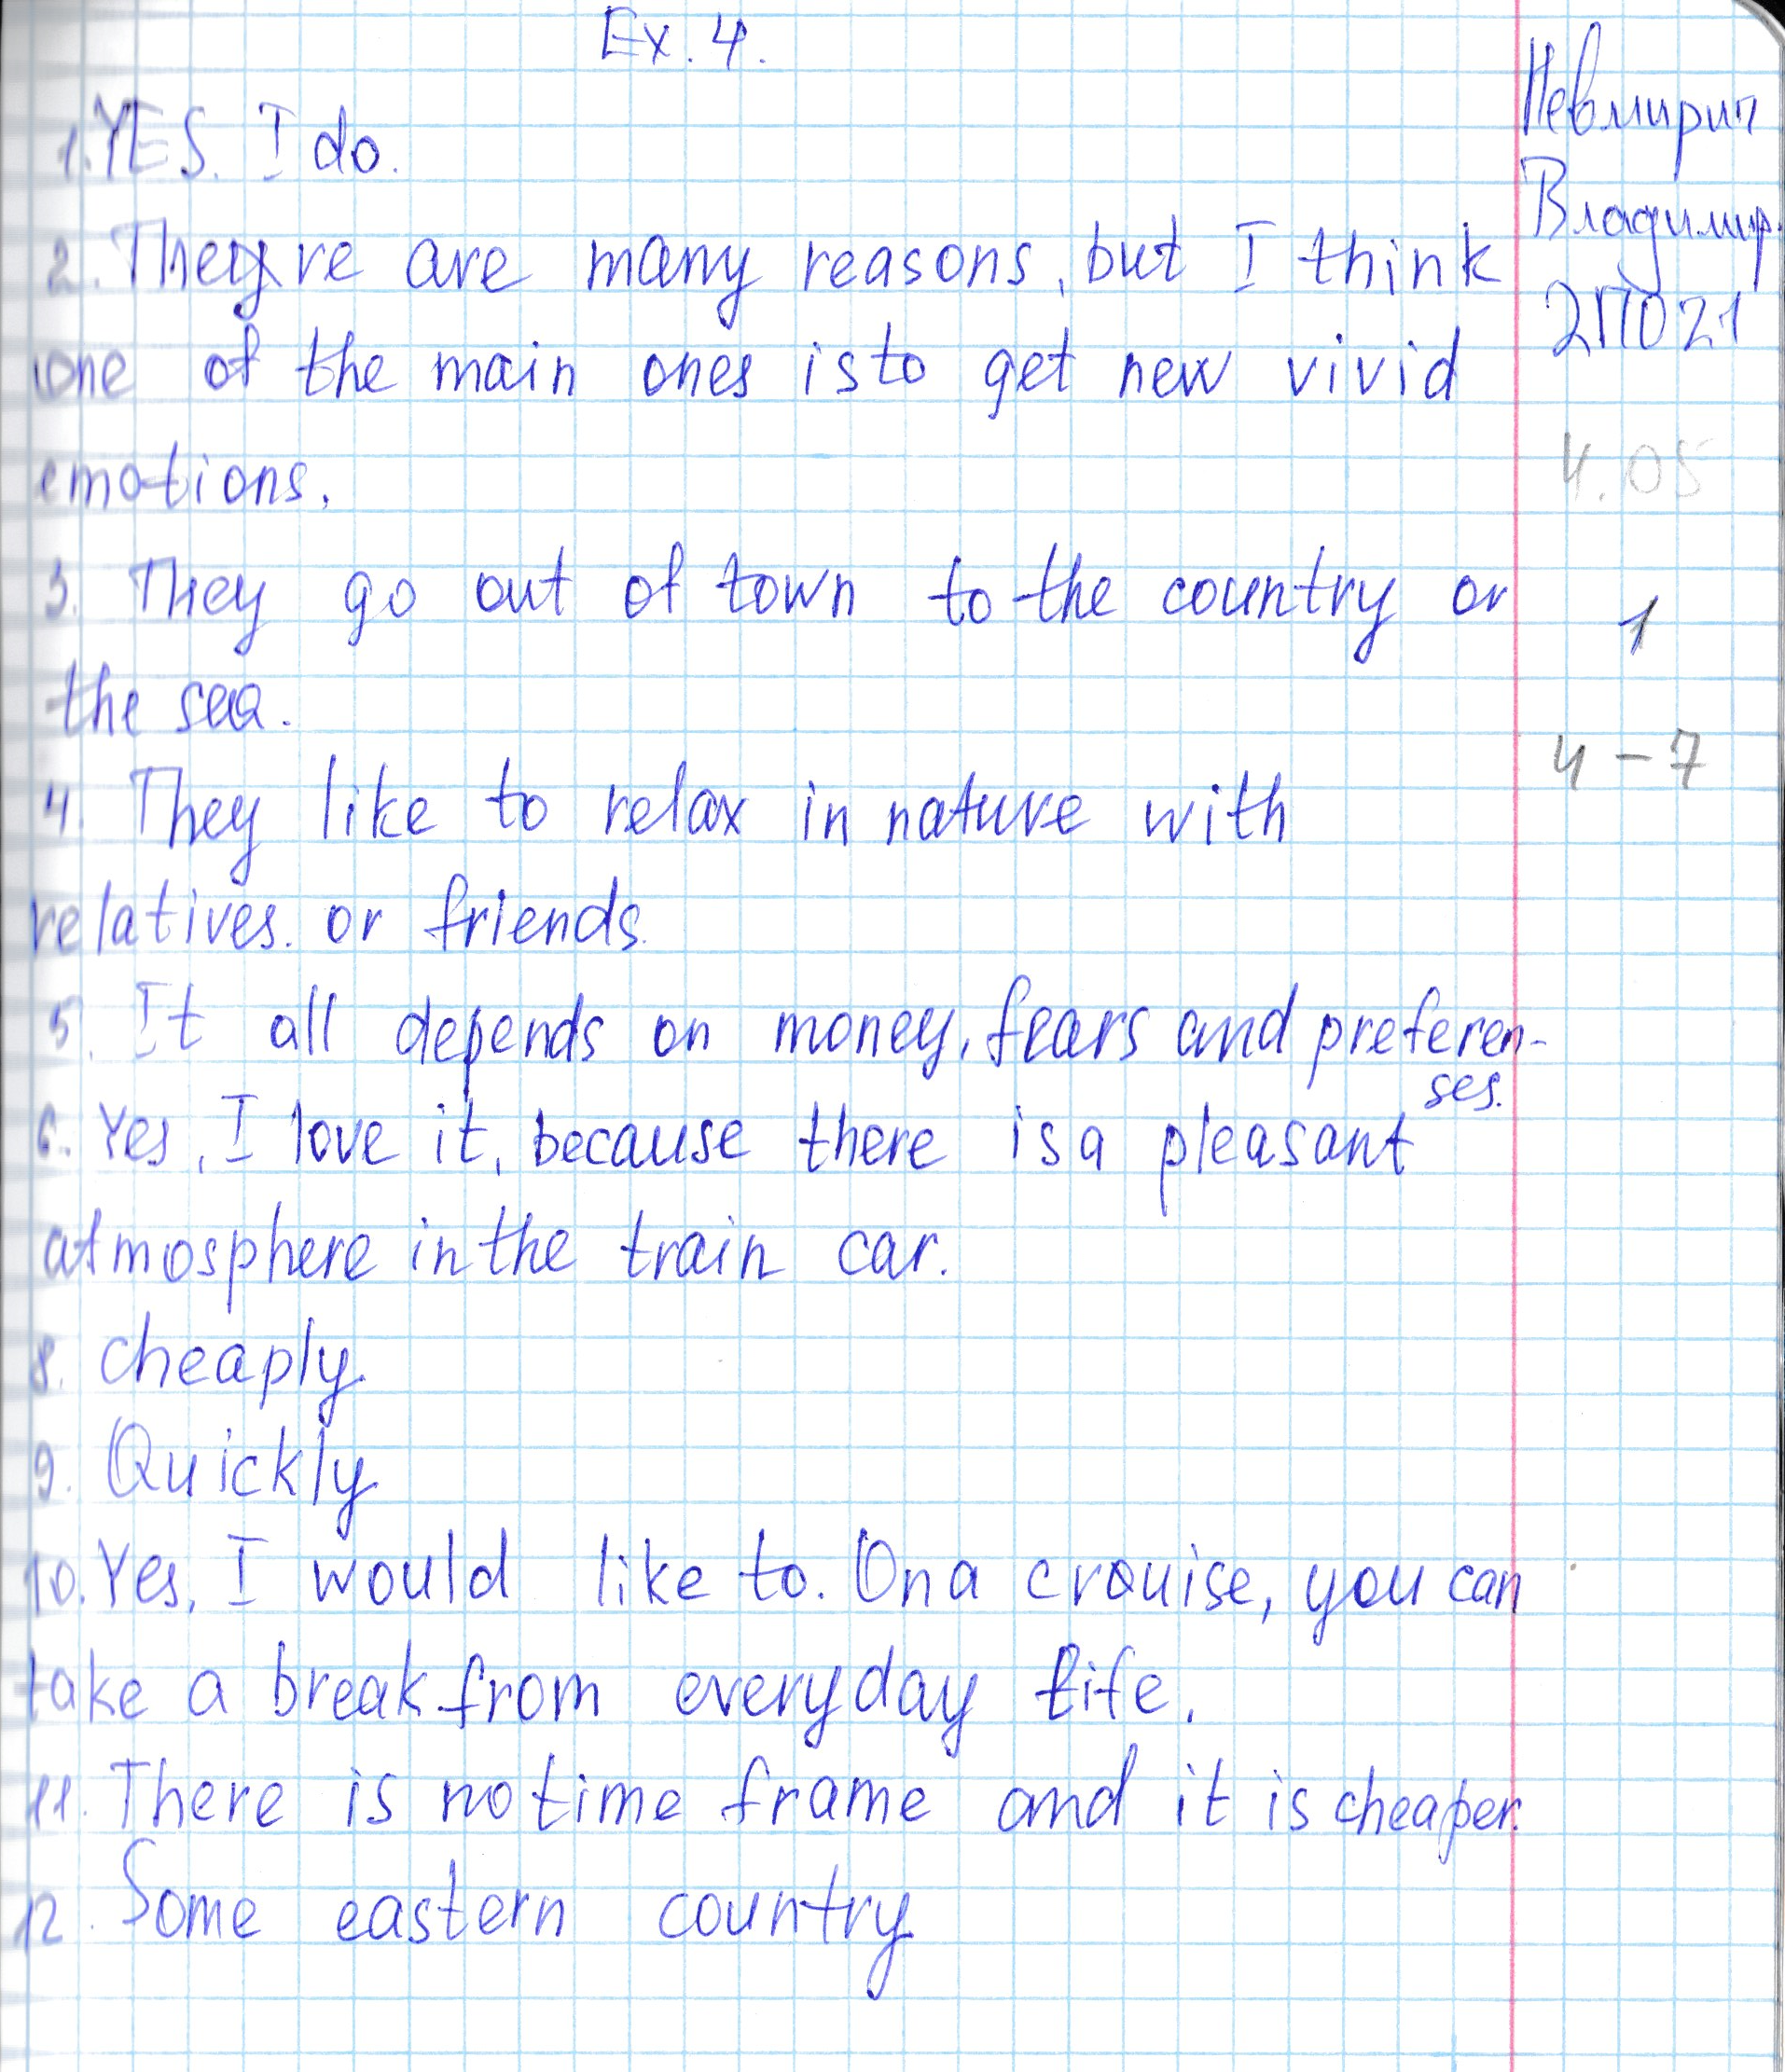 Ex. 4.
1. YES. I do.
2. There are many reasons, but I think
one of the main ones is to get new vivid
emotions.
3. They go out of town to the country or
the sea.
4. They like to relax in nature with
relatives. or friends.
5. It all depends on money, fears and preferen-
ses.
6. Yes, I love it, because there is a pleasant
atmosphere in the train car.
8. Cheaply.
9. Quickly.
10. Yes, I would like to. On a crouise, you can
take a break from everyday life.
11. There is no time frame and it is cheaper.
12. Some eastern country.
Владимир
2П021
4.05
1
4-7